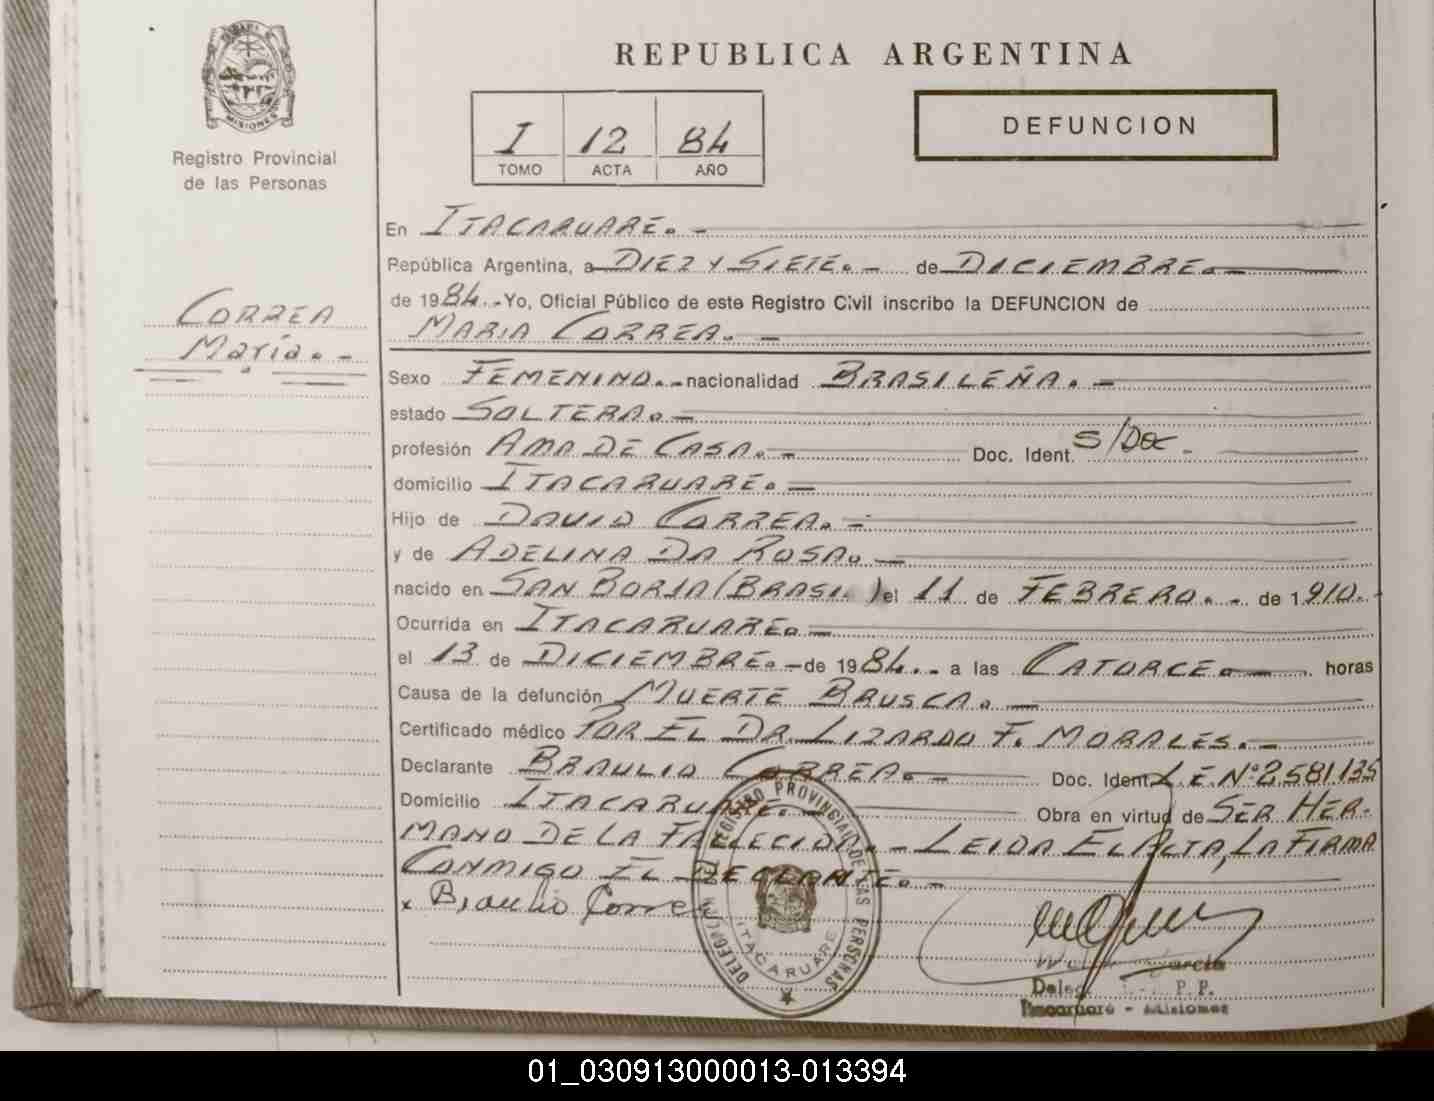 MISIONES
Registro Provincial
de las Personas
CORREA
María. -
REPUBLICA ARGENTINA
I 12 84
TOMO ACTA AÑO
DEFUNCION
En ITACARUARE. -
República Argentina, a DIEZ Y SIETE. - de DICIEMBRE. -
de 1984. - Yo, Oficial Público de este Registro Civil inscribo la DEFUNCION de
MARIA CORREA. -
Sexo FEMENINO. - nacionalidad BRASILEÑA. -
estado SOLTERA. -
profesión AMA DE CASA. - Doc. Ident. S/DOC -
domicilio ITACARUARE. -
Hijo de DAVID CORREA. -
y de ADELINA DA ROSA. -
nacido en SAN BORJA (BRASIL) el 11 de FEBRERO. - de 1910. -
Ocurrida en ITACARUARE. -
el 13 de DICIEMBRE. - de 1984. - a las CATORCE. - horas
Causa de la defunción MUERTE BRUSCA. -
Certificado médico POR EL DR. LIZARDO F. MORALES. -
Declarante BRAULIO CORREA. - Doc. Ident. L.E.Nº 2581135
Domicilio ITACARUARE. - Obra en virtud de SER HER-
MANO DE LA FALLECIDA. - LEIDA EL ACTA, LA FIRMA
CONMIGO EL DECLARANTE. -
x Braulio Correa
DELEGACION DEL REGISTRO PROVINCIAL DE LAS PERSONAS
ITACARUARE
García
Deleg. R. P. P.
Itacaruaré - Misiones
01_030913000013-013394